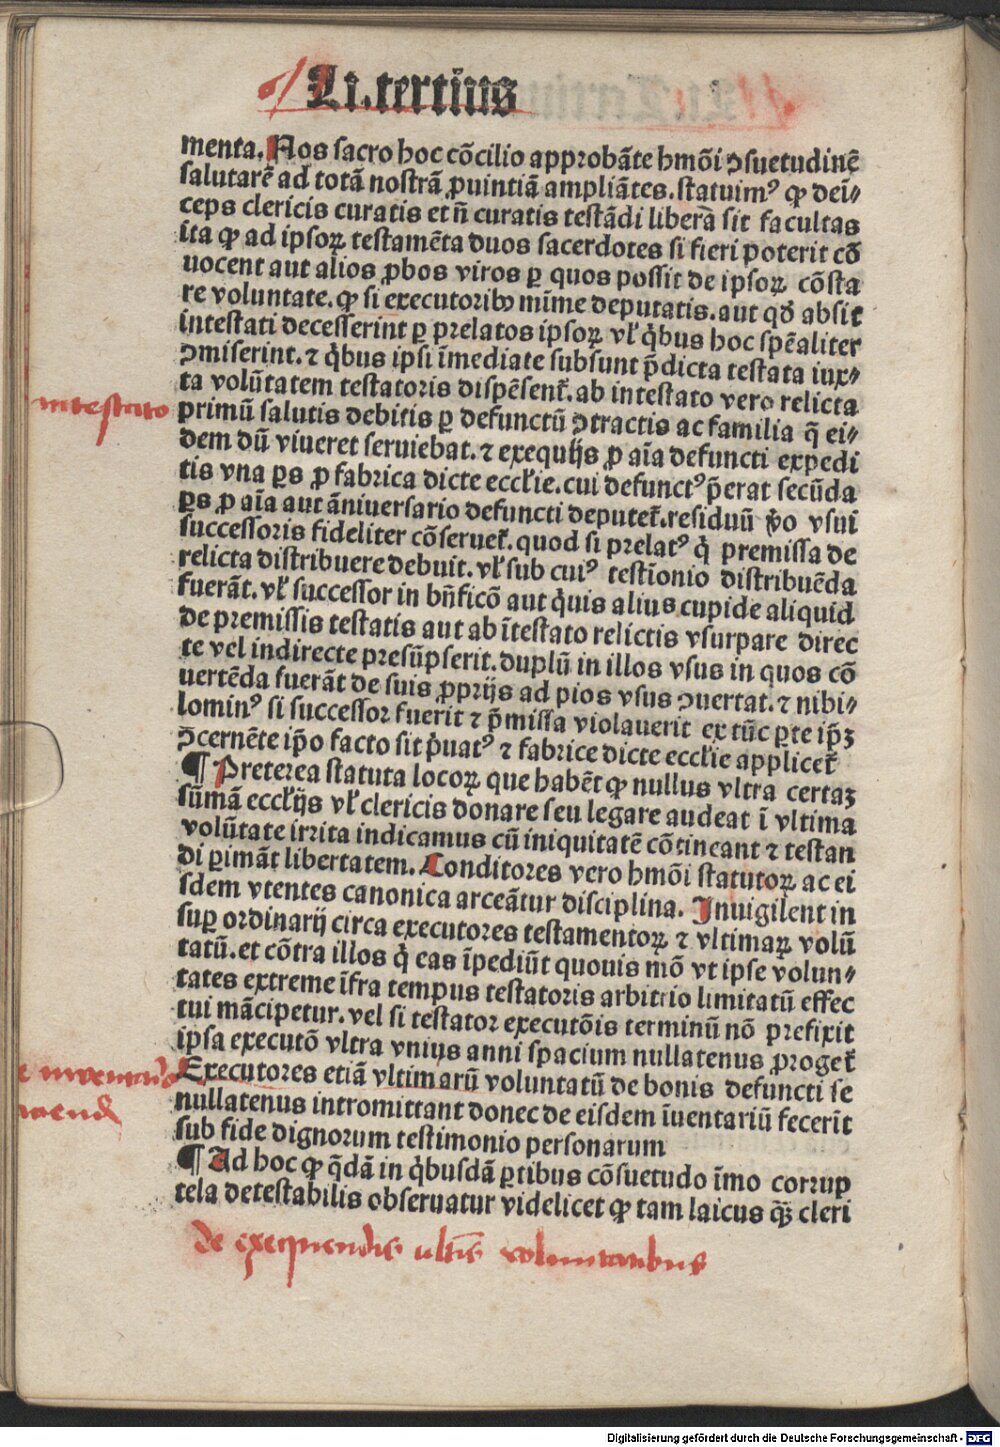 Li.tertius
menta. Nos sacro hoc cõcilio approbãte hmõi ꝯsuetudinẽ
salutarẽ ad totã nostrã ꝓuintiã ampliãtes. statuimꝰ ꝙ deĩ⸗
ceps clericis curatis et ñ curatis testãdi libera sit facultas
ita ꝙ ad ipsoꝝ testamẽta duos sacerdotes si fieri poterit cõ
uocent aut alios ꝓbos viros ꝑ quos possit de ipsoꝝ cõsta
re voluntate. ꝙ si executoribꝰ mĩme deputatis. aut qd̛ absit
intestati decesserint ꝑ prelatos ipsoꝝ vl̛ q̇bus hoc spẽaliter
ꝯmiserint. ⁊ q̇bus ipsi ĩmediate subsunt p̃dicta testata iux⸗
ta volũtatem testatoris dispẽsent̛. ab intestato vero relicta
intestato
primũ salutis debitis ꝑ defunctũ ꝯtractis ac familia q̃ ei⸗
dem dũ viueret seruiebat. ⁊ exequijs ꝓ aĩa defuncti expedi
tis vna ꝑs ꝓ fabrica dicte eccl̛ie. cui defunctꝰ p̃erat secũda
ꝑs ꝓ aĩa aut ãniuersario defuncti deputet̛. residuũ ṽo vsui
successoris fideliter cõseruet̛. quod si prelatꝰ q̇ premissa de
relicta distribuere debuit. vl̛ sub cuiꝰ testĩonio distribuẽda
fuerãt. vl̛ successor in bñficõ aut q̇uis alius cupide aliquid
de premissis testatis aut ab ĩtestato relictis vsurpare direc
te vel indirecte presũpserit. duplũ in illos vsus in quos cõ
uertẽda fuerãt de suis ꝓprijs ad pios vsus ꝯuertat. ⁊ nihi⸗
lominꝰ si successor fuerit ⁊ p̃missa violauerit ex tũc ꝑte ip̃ꝫ
ꝯcernẽte ip̃o facto sit ṗuatꝰ ⁊ fabrice dicte eccl̛ie applicet̛
¶ Preterea statuta locoꝝ que habẽt ꝙ nullus vltra certaꝫ
sũmã eccl̛ijs vl̛ clericis donare seu legare audeat ĩ vltima
volũtate irrita indicamus cũ iniquitatẽ cõtineant ⁊ testan
di ꝑimãt libertatem. Conditores vero hmõi statutoꝝ ac ei
sdem vtentes canonica arceãtur disciplina. Inuigilent in
suꝑ ordinarij circa executores testamentoꝝ ⁊ vltimaꝝ volũ
tatũ. et cõtra illos q̇ eas ĩpediũt quouis mõ vt ipse volun⸗
tates extreme ĩfra tempus testatoris arbitrio limitatũ effec
tui mãcipetur. vel si testator executõis terminũ nõ prefixit
ipsa executõ vltra vnius anni spacium nullatenus ꝓroget̛
Executores etiã vltimarũ voluntatũ de bonis defuncti se
nullatenus intromittant donec de eisdem ĩuentariũ fecerĩt
sub fide dignorum testimonio personarum
¶ Ad hoc ꝙ q̃dã in q̇busdã ꝑtibus cõsuetudo ĩmo corrup
tela detestabilis obseruatur videlicet ꝙ tam laicus qꝫ cleri
de exequendis ultĩs voluntatibus
Digitalisierung gefördert durch die Deutsche Forschungsgemeinschaft - DFG